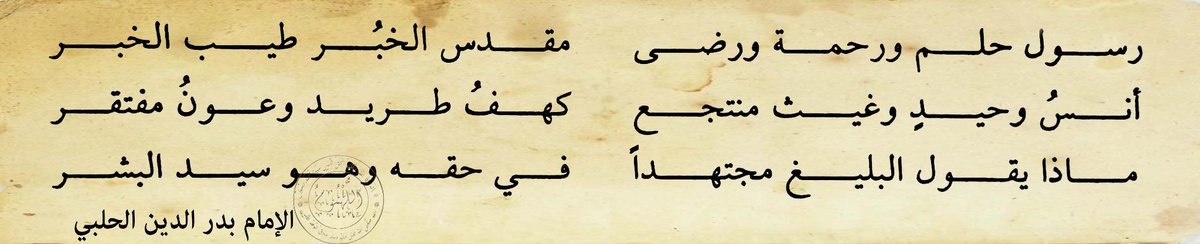 رسول حلم ورحمة ورضى مقدس الخبُر طيب الخبر
أنسُ وحيدٍ وغيث منتجع كهفُ طريد وعونُ مفتقر
ماذا يقول البليغ مجتهداً في حقه وهو سيد البشر
الإمام بدر الدين الحلبي